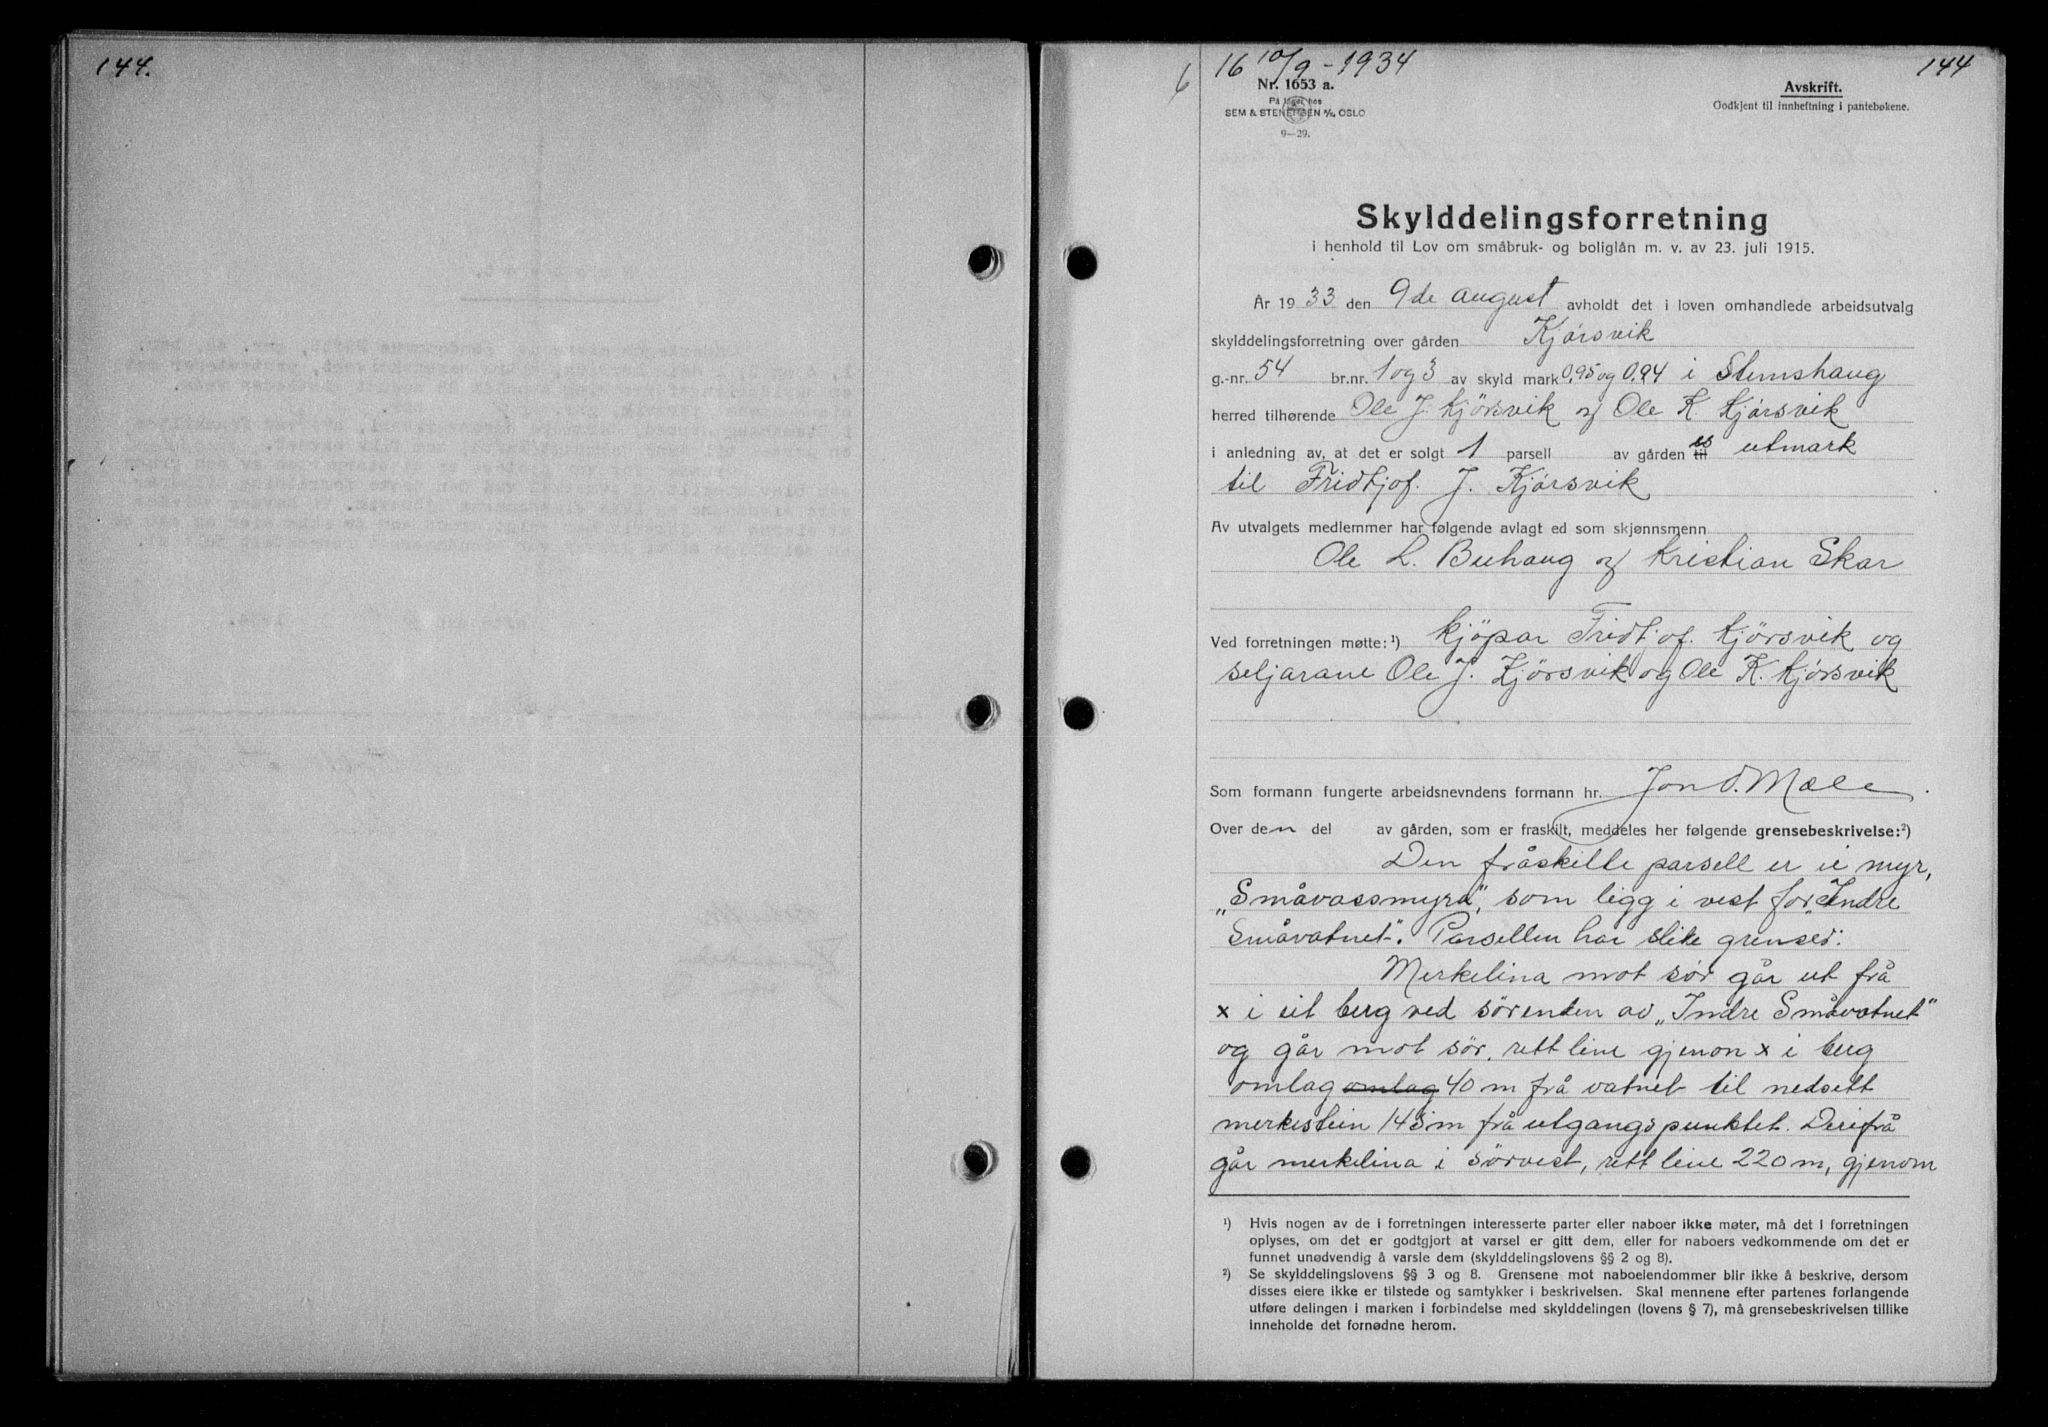 144.
6 16 10/9 - 1934
144
Nr. 1653 a.
På lager hos
SEM & STENERSEN A/S OSLO
9—29.
Avskrift.
Godkjent til innheftning i pantebøkene.
Skylddelingsforretning
i henhold til Lov om småbruk- og boliglån m. v. av 23. juli 1915.
År 1933 den 9de august avholdt det i loven omhandlede arbeidsutvalg
skylddelingsforretning over gården Kjørsvik
g.-nr. 54 br.nr. 1 og 3 av skyld mark 0,95 og 0,94 i Stemshaug
herred tilhørende Ole J. Kjørsvik og Ole K. Kjørsvik
i anledning av, at det er solgt 1 parsell av gården til es utmark
til Fridtjof. J. Kjørsvik
Av utvalgets medlemmer har følgende avlagt ed som skjønnsmenn
Ole L. Buhaug og Kristian Skar
Ved forretningen møtte: ¹) kjöpar Fridtjof. Kjørsvik og
seljarane Ole J. Kjørsvik og Ole K. Kjørsvik
Som formann fungerte arbeidsnevndens formann hr. Jon O. Mæle.
Over den del av gården, som er fraskilt, meddeles her følgende grensebeskrivelse: ²)
Den fråskille parsell er ei myr,
"Småvassmyra", som ligg i vest for "Indre
Småvatnet". Parsellen har slike grenser:
Merkelina mot sør går ut frå
x i eit berg ved sørenden av "Indre Småvatnet"
og går mot sør, rett line gjenon x i berg
omlag omlag 40 m frå vatnet til nedsett
merkestein 145 m frå utgangspunktet. Derifrå
går merkelina i sørvest, rett line 220 m, gjenom
¹) Hvis nogen av de i forretningen interesserte parter eller naboer ikke møter, må det i forretningen
oplyses, om det er godtgjort at varsel er gitt dem, eller for naboers vedkommende om det er
funnet unødvendig å varsle dem (skylddelingslovens §§ 2 og 8).
²) Se skylddelingslovens §§ 3 og 8. Grensene mot naboelendommer blir ikke å beskrive, dersom
disses eiere ikke er tilstede og samtykker i beskrivelsen. Skal mennene efter partenes forlangende
utføre delingen i marken i forbindelse med skylddelingen (lovens § 7), må grensebeskrivelsen tillike
inneholde det fornødne herom.